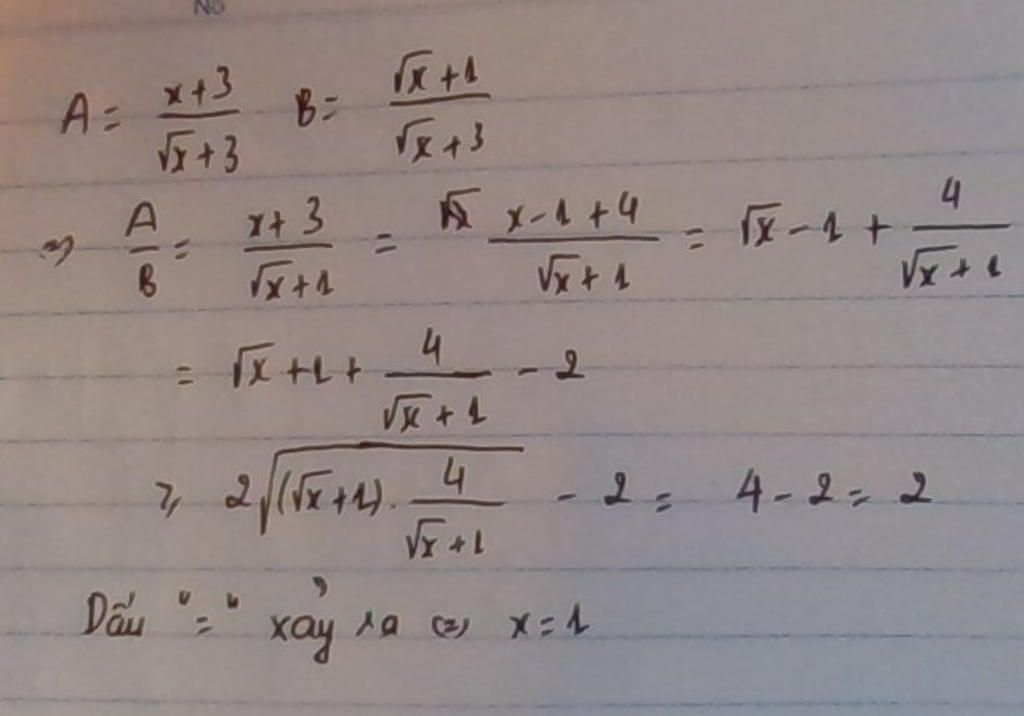 No
A = \frac{x+3}{\sqrt{x}+3} B = \frac{\sqrt{x}+1}{\sqrt{x}+3}
=> \frac{A}{B} = \frac{x+3}{\sqrt{x}+1} = \frac{x-1+4}{\sqrt{x}+1} = \sqrt{x}-1+\frac{4}{\sqrt{x}+1}
= \sqrt{x}+1+\frac{4}{\sqrt{x}+1}-2
≥ 2\sqrt{(\sqrt{x}+1).\frac{4}{\sqrt{x}+1}}-2 = 4-2 = 2
Dấu "=" xảy ra (=) x=1